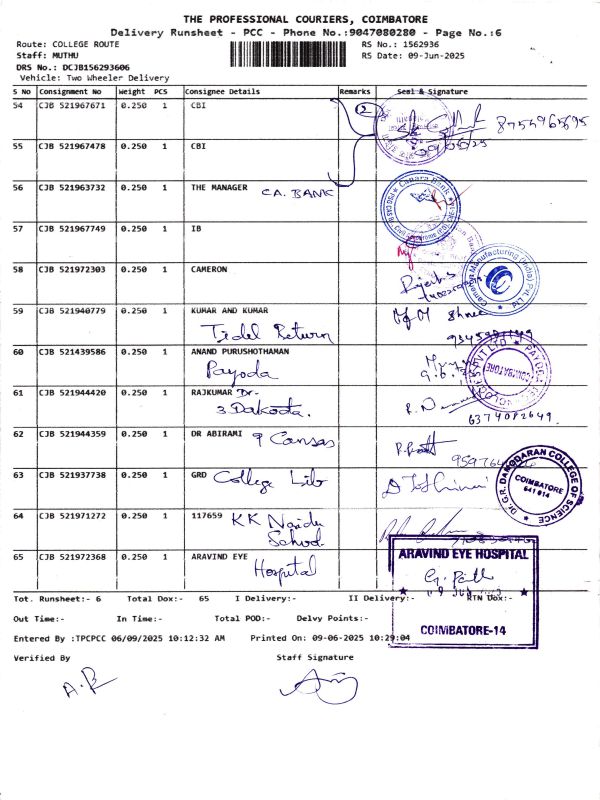 THE PROFESSIONAL COURIERS, COIMBATORE
Delivery Runsheet - PCC - Phone No.:9047080280 - Page No.:6
Route: COLLEGE ROUTE
RS No.: 1562936
Staff: MUTHU
RS Date: 09-Jun-2025
DRS No.: DCJB156293606
Vehicle: Two Wheeler Delivery
S No Consignment No Weight PCS Consignee Details Remarks Seal & Signature
54 CJB 521967671 0.250 1 CBI 2
55 CJB 521967478 0.250 1 CBI
56 CJB 521963732 0.250 1 THE MANAGER CA. BANK
Canara Bank
57 CJB 521967749 0.250 1 IB
58 CJB 521972303 0.250 1 CAMERON
Cameron Manufacturing (India) Pvt Ltd
59 CJB 521940779 0.250 1 KUMAR AND KUMAR
Tidel Return
60 CJB 521439586 0.250 1 ANAND PURUSHOTHAMAN
Payoda
COIMBATORE
61 CJB 521944420 0.250 1 RAJKUMAR Dr.
3 Dakoda.
6374082649
62 CJB 521944359 0.250 1 DR ABIRAMI 9 Cansas
63 CJB 521937738 0.250 1 GRD College Lib
Dr. G.R. DAMODARAN COLLEGE OF SCIENCE
COIMBATORE
641 014
64 CJB 521971272 0.250 1 117659 KK Naidu
School
65 CJB 521972368 0.250 1 ARAVIND EYE
Hospital
ARAVIND EYE HOSPITAL
COIMBATORE-14
Tot. Runsheet:- 6 Total Dox:- 65 I Delivery:- II Delivery:- RTN Dox:-
Out Time:- In Time:- Total POD:- Delvy Points:-
Entered By :TPCPCC 06/09/2025 10:12:32 AM Printed On: 09-06-2025 10:29:04
Verified By Staff Signature